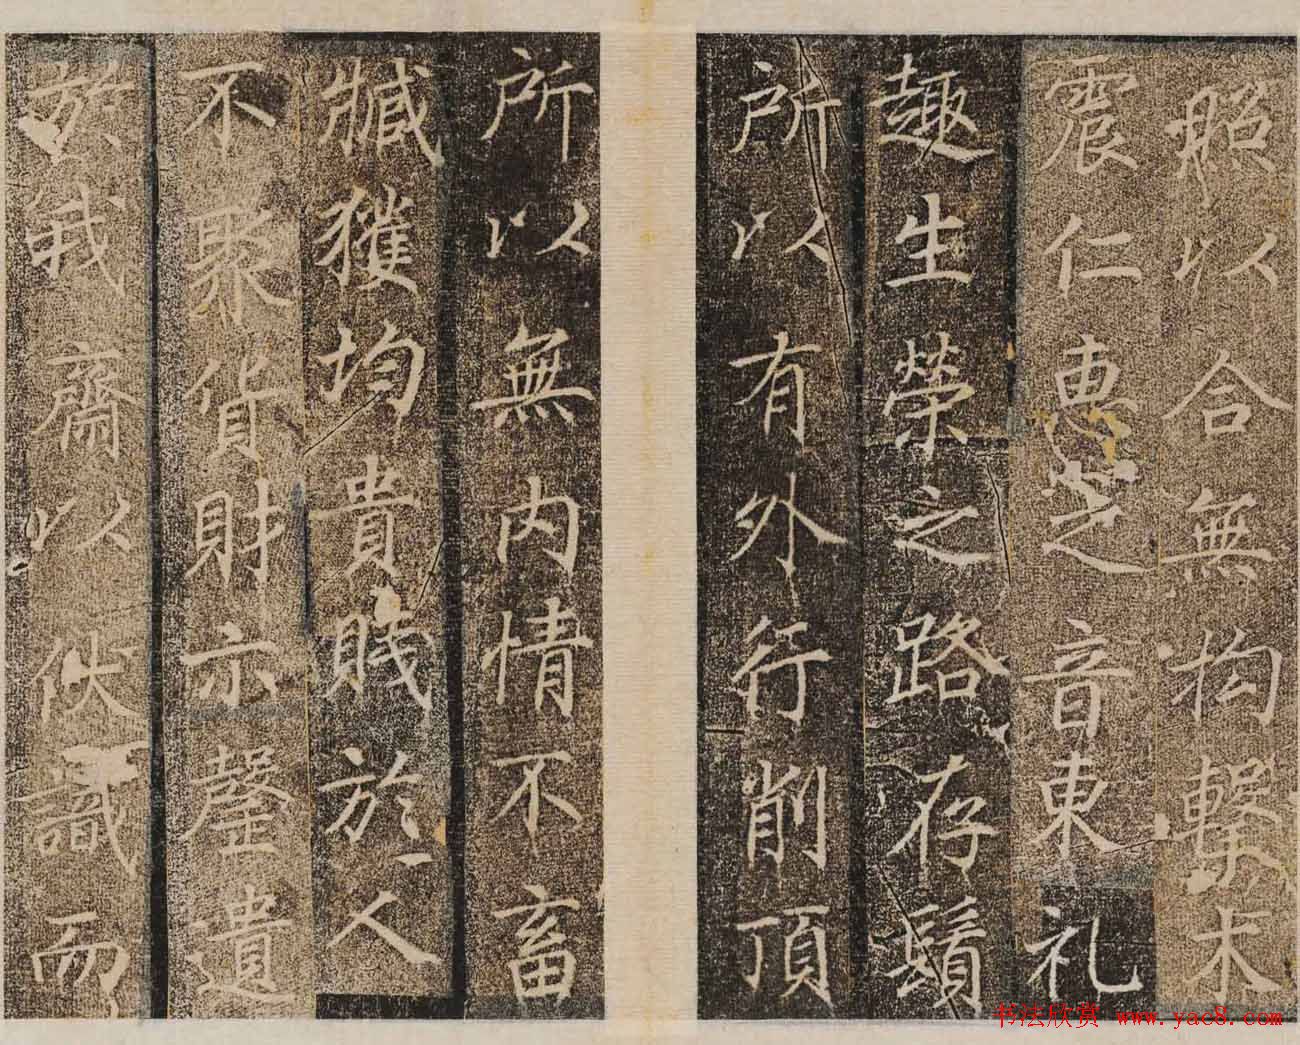 照以合無构擊木
震仁惠之音東礼
趣生榮之路存鬚
所以有外行削頂
所以無內情不畜
臧獲均貴賤於人
不聚貨財示罄遺
於我齋以伏識而
书法欣赏 www.yac8.com